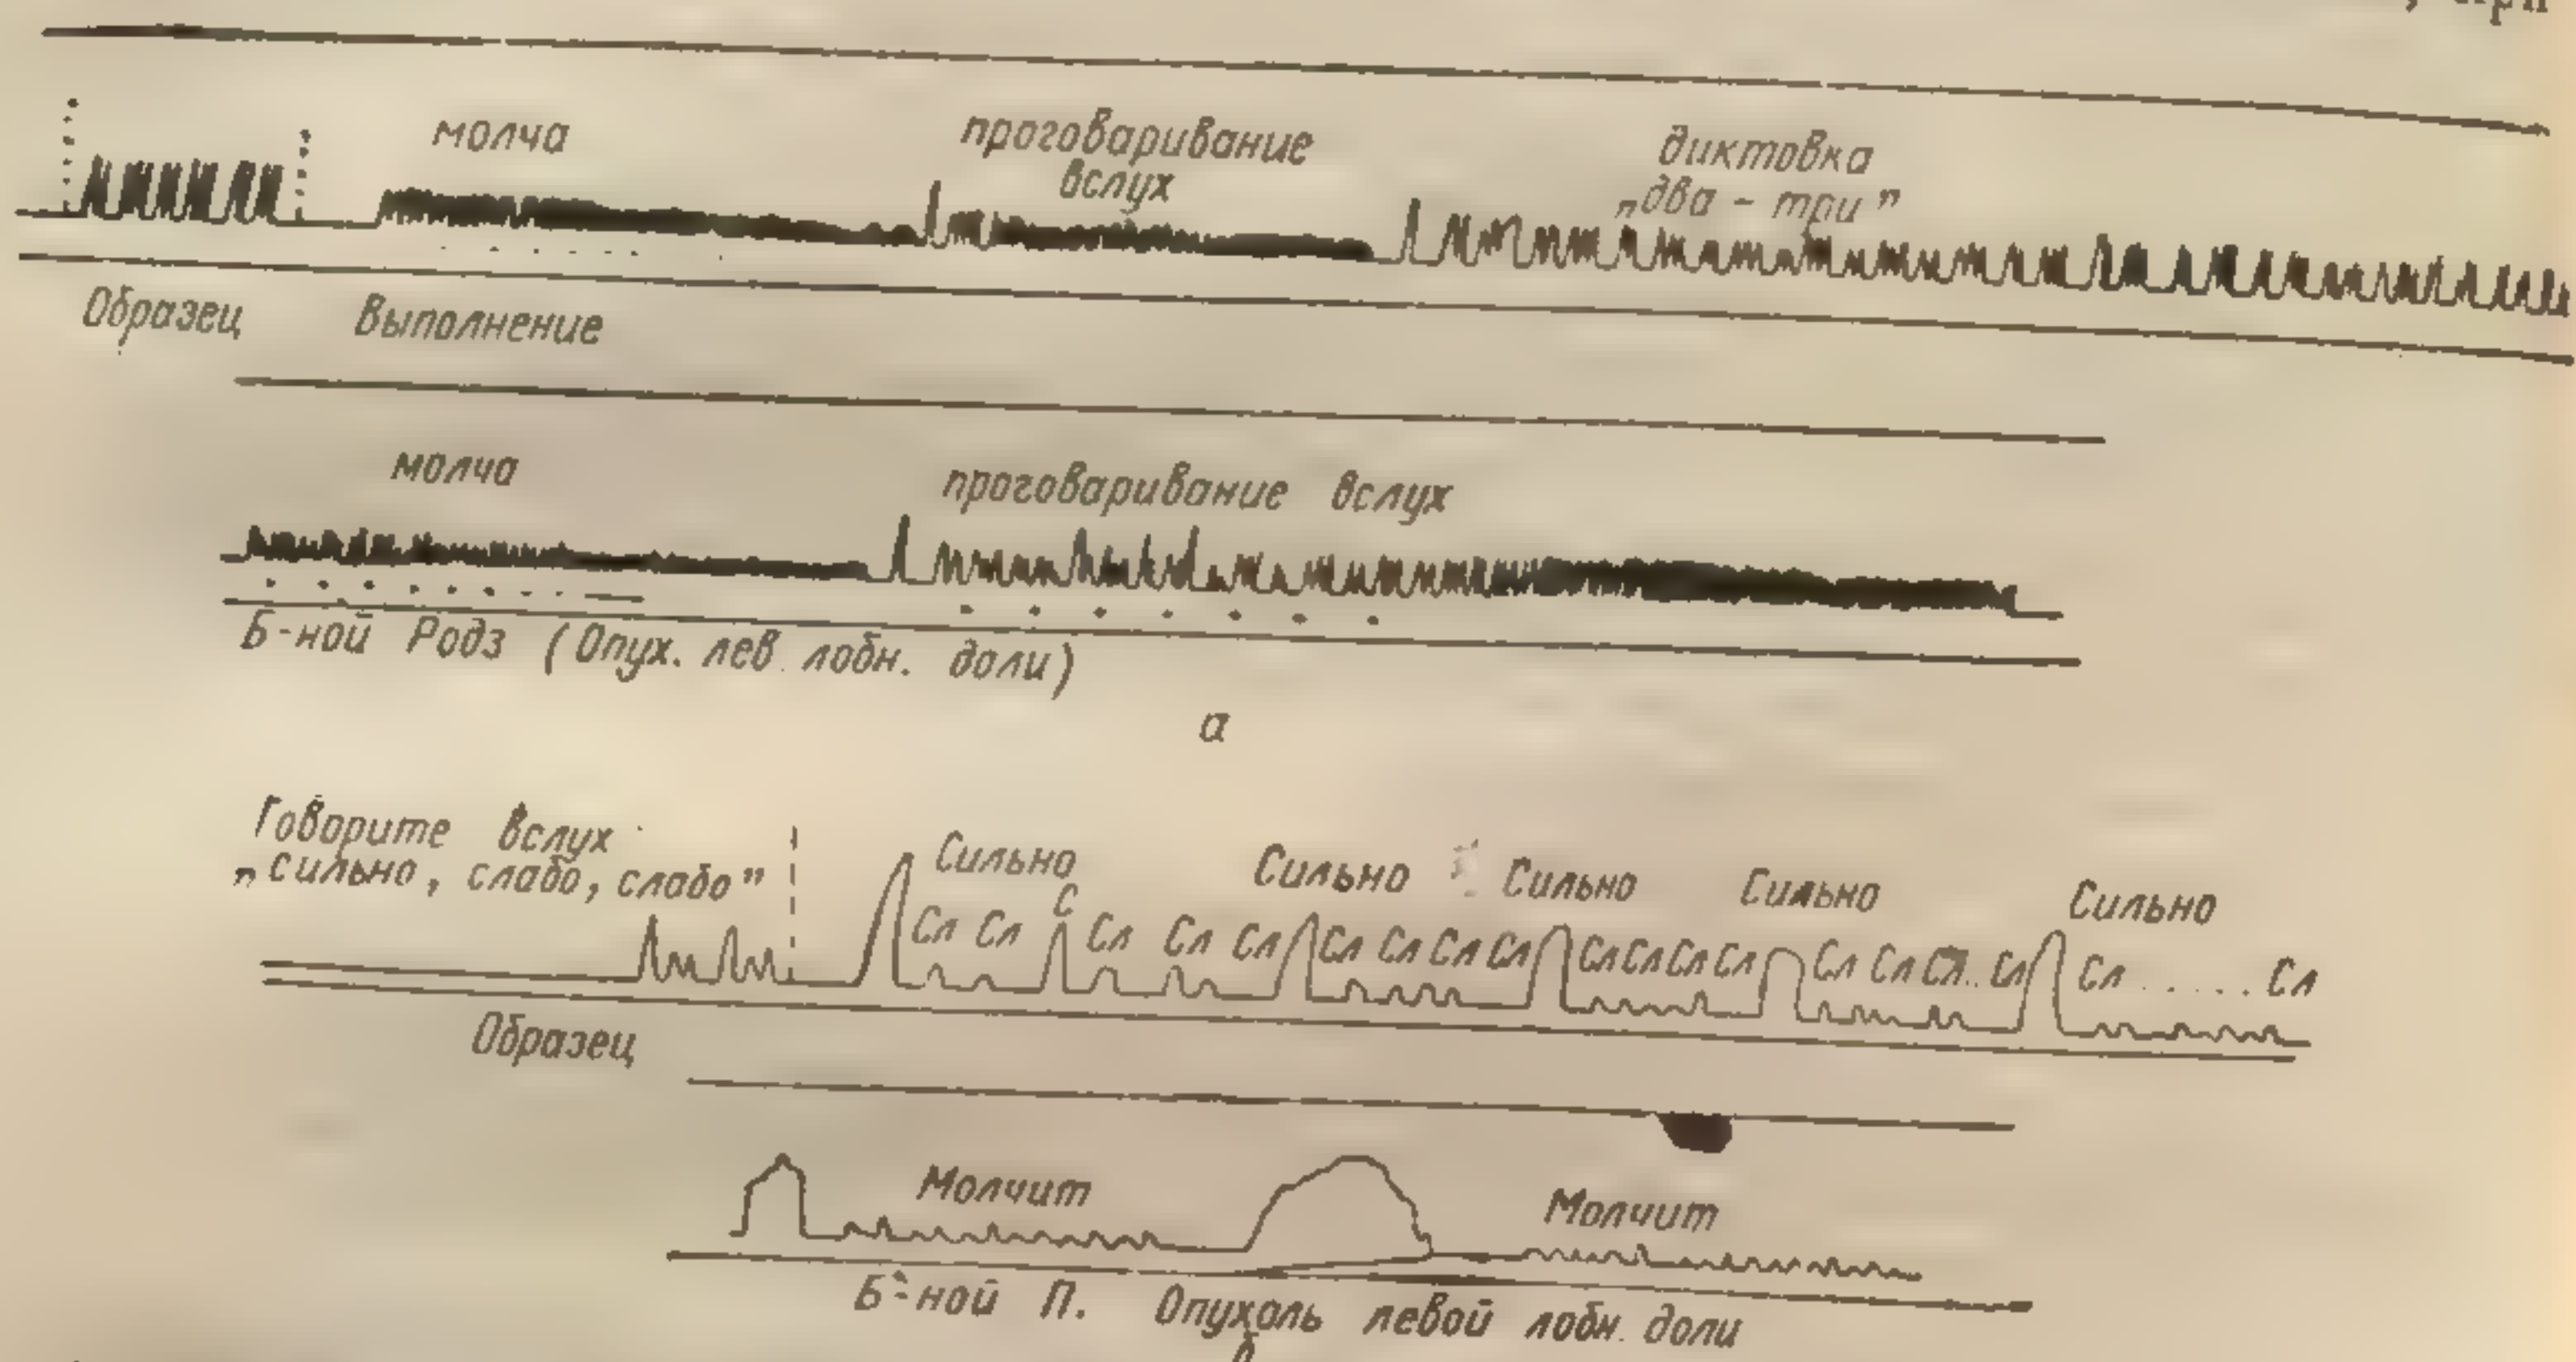 , при
молча
проговаривание
вслух
диктовка
„два - три”
Образец
Выполнение
молча
проговаривание вслух
Б-ной Родз (Опух. лев. лобн. доли)
а
Говорите вслух
„сильно, слабо, слабо”
Сильно
Сильно
Сильно
Сильно
Сильно
Сл Сл С Сл Сл Сл Сл Сл Сл Сл Сл Сл Сл Сл Сл Сл Сл.. Сл Сл ..... Сл
Образец
Молчит
Молчит
Б-ной П. Опухоль левой лобн. доли